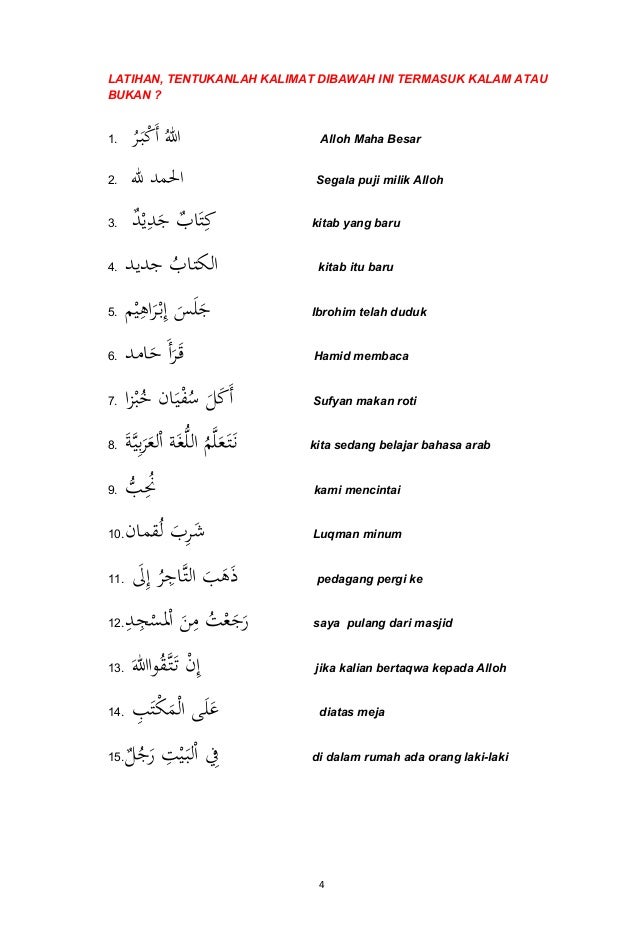 LATIHAN, TENTUKANLAH KALIMAT DIBAWAH INI TERMASUK KALAM ATAU
BUKAN ?
1. اللهُ أَكْبَرُ Alloh Maha Besar
2. الحمد لله Segala puji milik Alloh
3. كِتَابٌ جَدِيْدٌ kitab yang baru
4. الكتابُ جديد kitab itu baru
5. جَلَسَ إِبْرَاهِيْم Ibrohim telah duduk
6. قَرَأَ حَامد Hamid membaca
7. أَكَلَ سُفْيَان خُبْزا Sufyan makan roti
8. نَتَعَلَّمُ اللُّغَة اْلعَرَبِيَّةَ kita sedang belajar bahasa arab
9. نُحِبُّ kami mencintai
10. شَرِبَ لُقمان Luqman minum
11. ذَهَبَ التَّاجِرُ إِلَى pedagang pergi ke
12. رَجَعْتُ مِنَ اْلمَسْجِدِ saya pulang dari masjid
13. إِنْ تَتَّقُوااللهَ jika kalian bertaqwa kepada Alloh
14. عَلَى الْمَكْتَبِ diatas meja
15. فِي اْلبَيْتِ رَجُلٌ di dalam rumah ada orang laki-laki
4